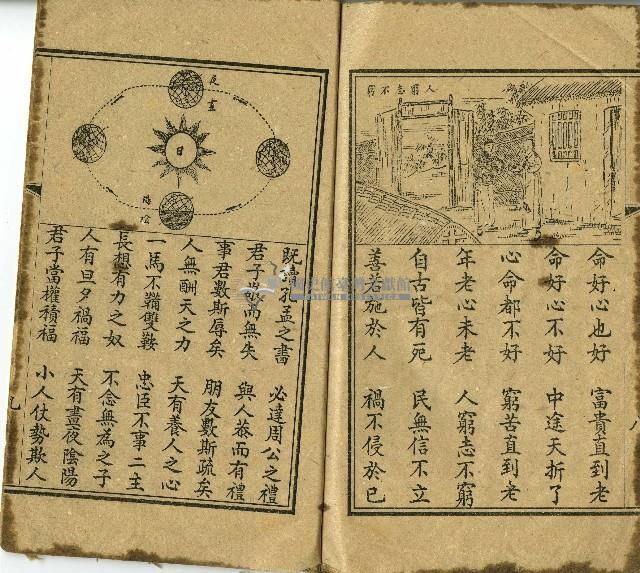 人窮志不窮
命好心也好　富貴直到老
命好心不好　中途夭折了
心命都不好　窮苦直到老
年老心未老　人窮志不窮
自古皆有死　民無信不立
善若施於人　禍不侵於己
八
晝
日
陰
既讀孔孟之書　必達周公之禮
君子敬而無失　與人恭而有禮
事君數斯辱矣　朋友數斯疏矣
人無酬天之力　天有養人之心
一馬不鞴雙鞍　忠臣不事二主
長想有力之奴　不念無為之子
人有旦夕禍福　天有晝夜陰陽
君子當權積福　小人仗勢欺人
九
國史館臺灣文獻館
TAIWAN HISTORICA